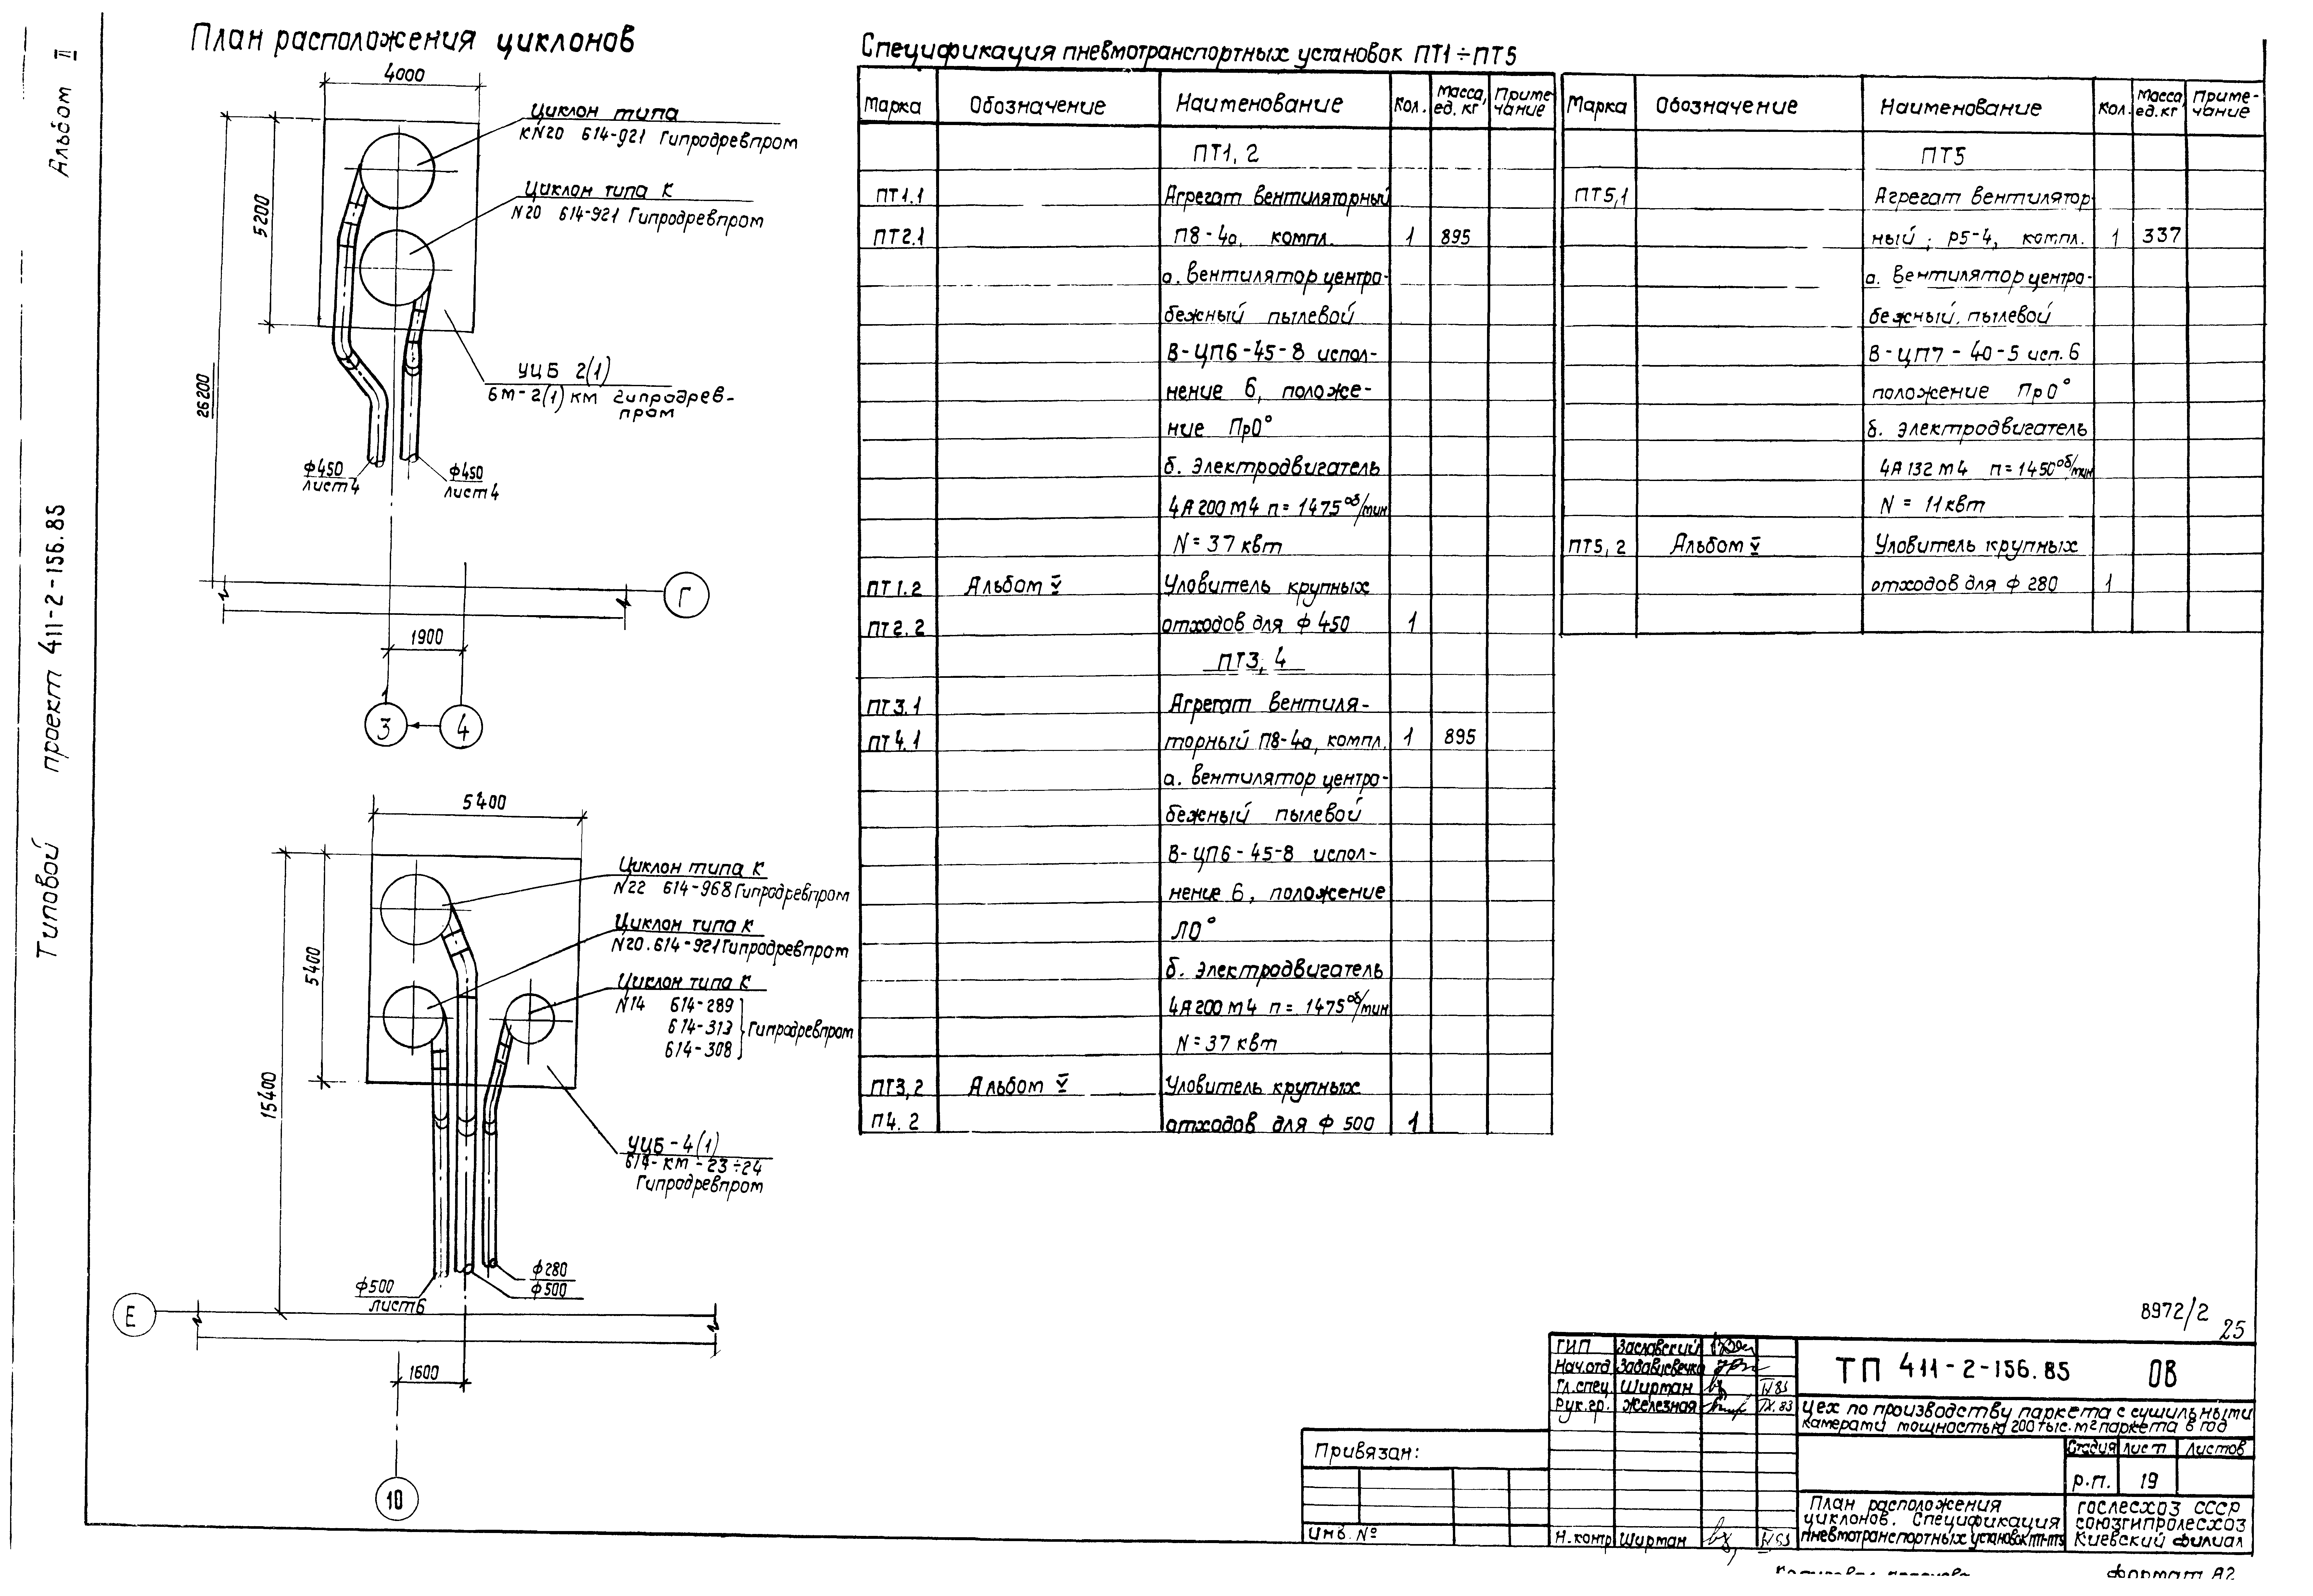 Альбом II
Типовой проект 411-2-156.85
План расположения циклонов
4000
5200
26200
Циклон типа
КN20 614-921 Гипродревпром
Циклон типа К
N20 614-921 Гипродревпром
УЦБ 2(1)
6м-2(1) км гипродрев-
пром
ф450
лист4
ф450
лист4
Г
1900
3
4
5400
5400
15400
Циклон типа К
N22 614-968 Гипродревпром
Циклон типа К
N20.614-921 Гипродревпром
Циклон типа К
N14 614-289
614-313
614-308
Гипродревпром
УЦБ-4(1)
614-км-23÷24
Гипродревпром
ф500
лист6
ф280
ф500
Е
1600
10
Спецификация пневмотранспортных установок ПТ1÷ПТ5
Марка Обозначение Наименование Кол. Масса, ед. кг Приме-чание
ПТ1, 2
ПТ1.1 Агрегат вентиляторный
ПТ2.1 П8-4а, компл. 1 895
а. вентилятор центро-
бежный пылевой
В-ЦП6-45-8 испол-
нение 6, положе-
ние Пр0°
б. электродвигатель
4А200М4 п=1475об/мин
N=37квт
ПТ1.2 Альбом V Уловитель крупных
ПТ2.2 отходов для ф450 1
ПТ3, 4
ПТ3.1 Агрегат вентиля-
ПТ4.1 торный П8-4а, компл. 1 895
а. вентилятор центро-
бежный пылевой
В-ЦП6-45-8 испол-
нение 6, положение
Л0°
б. электродвигатель
4А200М4 п=1475об/мин
N=37квт
ПТ3,2 Альбом V Уловитель крупных
П4.2 отходов для ф500 1
Марка Обозначение Наименование Кол. Масса ед.кг Приме-чание
ПТ5
ПТ5,1 Агрегат вентилятор-
ный; Р5-4, компл. 1 337
а. Вентилятор центро-
бежный. пылевой
В-ЦП7-40-5 исп.6
положение Пр0°
б. электродвигатель
4А132М4 п=1450об/мин
N=11квт
ПТ5,2 Альбом V Уловитель крупных
отходов для ф280 1
8972/2
25
ГИП Заславский
Нач.отд.
Гл.спец. Ширман
Рук.гр. Железная IX.83
Н.контр Ширман
ТП 411-2-156.85 ОВ
Цех по производству паркета с сушильными
камерами мощностью 200тыс.м2паркета в год
Стадия Лист Листов
р.п. 19
План расположения
циклонов. Спецификация
пневмотранспортных установок ПТ1-ПТ5
Гослесхоз СССР
Союзгипролесхоз
Киевский филиал
Привязан:
Инв. №
Формат А2